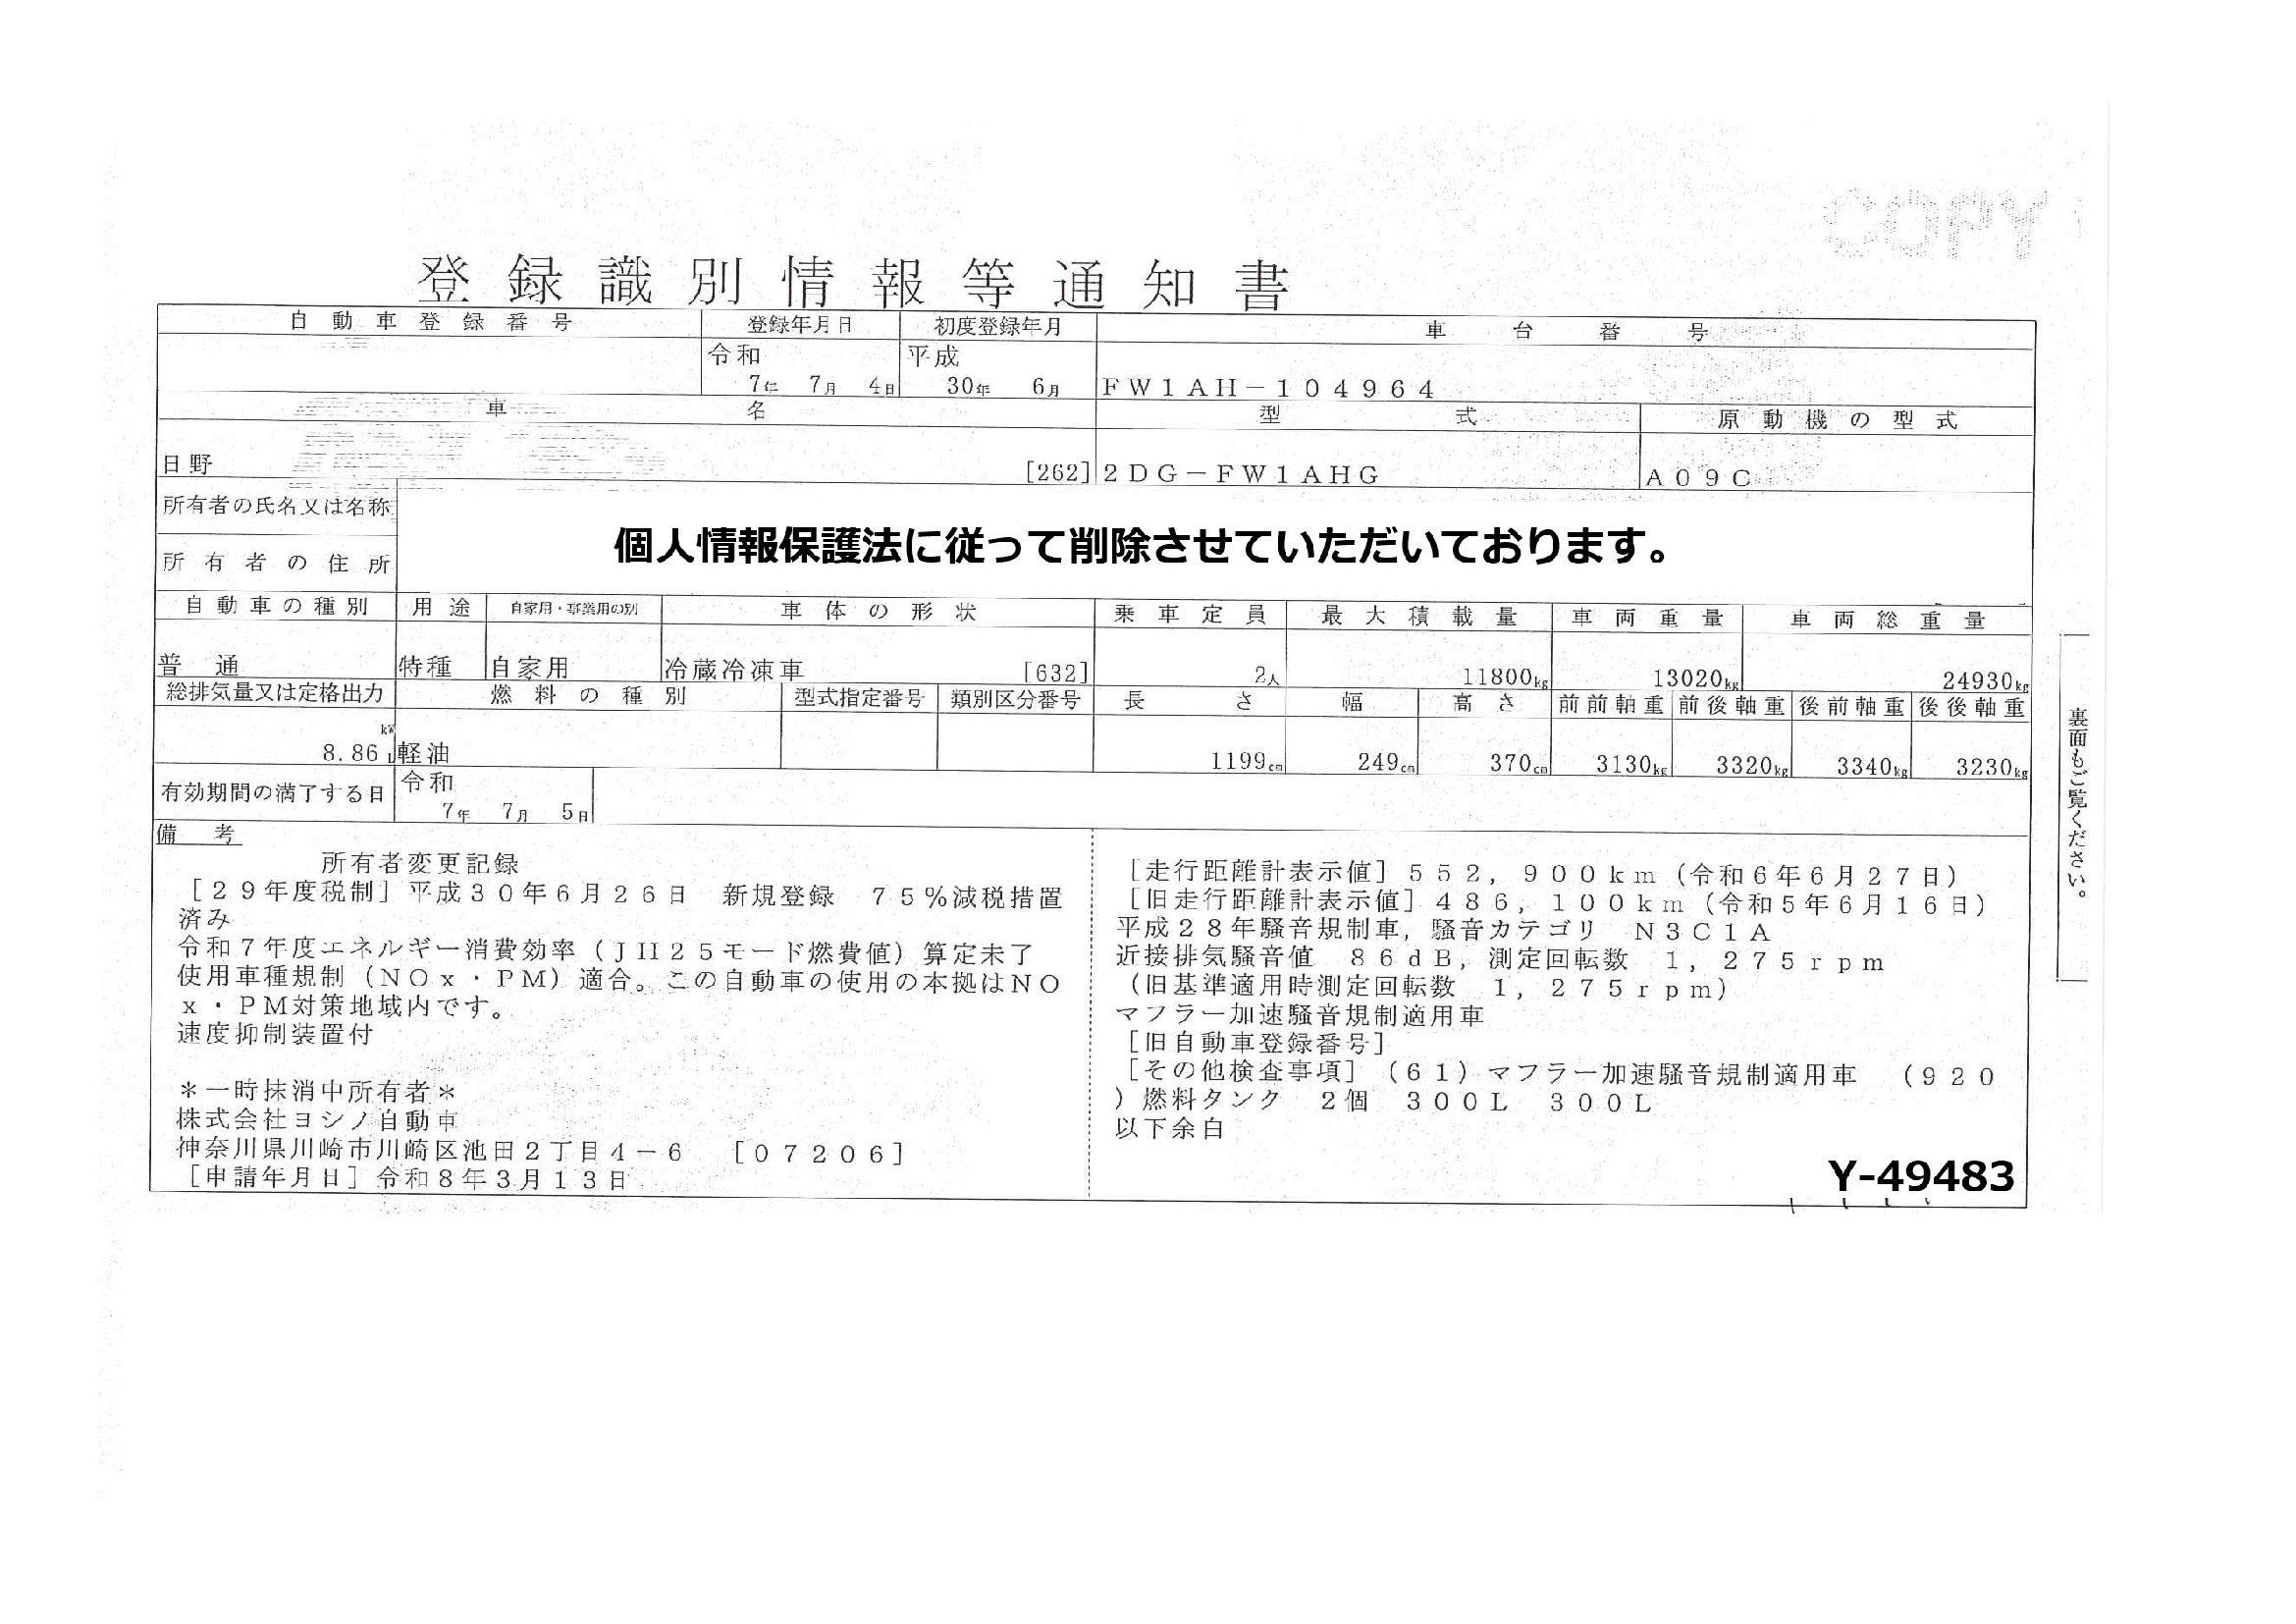 COPY
登録識別情報等通知書
自動車登録番号 登録年月日 初度登録年月 車台番号
令和 平成
7年 7月 4日 30年 6月 FW1AH-104964
車名 型式 原動機の型式
日野 [262] 2DG-FW1AHG A09C
所有者の氏名又は名称
個人情報保護法に従って削除させていただいております。
所有者の住所
自動車の種別 用途 自家用・事業用の別 車体の形状 乗車定員 最大積載量 車両重量 車両総重量
普通 特種 自家用 冷蔵冷凍車 [632] 2人 11800kg 13020kg 24930kg
総排気量又は定格出力 燃料の種別 型式指定番号 類別区分番号 長さ 幅 高さ 前前軸重 前後軸重 後前軸重 後後軸重
kW
8.86 L 軽油 1199cm 249cm 370cm 3130kg 3320kg 3340kg 3230kg
有効期間の満了する日 令和
7年 7月 5日
備考
所有者変更記録
[29年度税制]平成30年6月26日 新規登録 75%減税措置
済み
令和7年度エネルギー消費効率(JH25モード燃費値)算定未了
使用車種規制(NOx・PM)適合。この自動車の使用の本拠はNO
x・PM対策地域内です。
速度抑制装置付
*一時抹消中所有者*
株式会社ヨシノ自動車
神奈川県川崎市川崎区池田2丁目4-6 [07206]
[申請年月日]令和8年3月13日
[走行距離計表示値]552,900km(令和6年6月27日)
[旧走行距離計表示値]486,100km(令和5年6月16日)
平成28年騒音規制車,騒音カテゴリ N3C1A
近接排気騒音値 86dB,測定回転数 1,275rpm
(旧基準適用時測定回転数 1,275rpm)
マフラー加速騒音規制適用車
[旧自動車登録番号]
[その他検査事項](61)マフラー加速騒音規制適用車 (920
)燃料タンク 2個 300L 300L
以下余白
Y-49483
裏面もご覧ください。